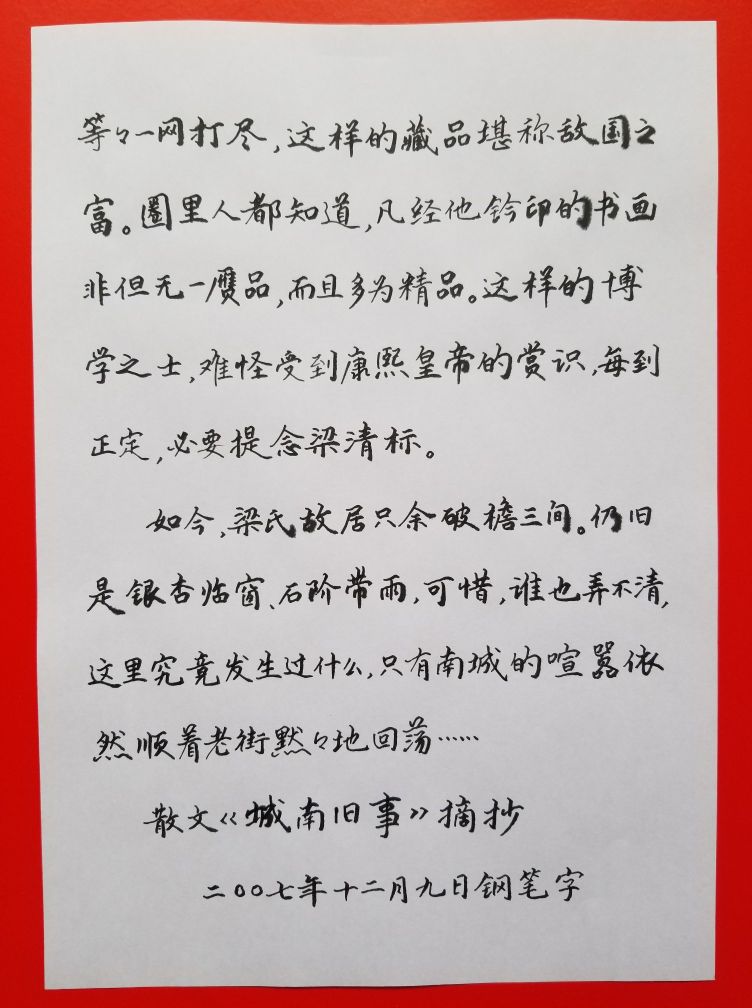 等々一网打尽,这样的藏品堪称敌国之
富。圈里人都知道,凡经他钤印的书画
非但无一赝品,而且多为精品。这样的博
学之士,难怪受到康熙皇帝的赏识,每到
正定,必要提念梁清标。
如今,梁氏故居只余破檐三间。仍旧
是银杏临窗、石阶带雨,可惜,谁也弄不清,
这里究竟发生过什么,只有南城的喧嚣依
然顺着老街默々地回荡……
散文《城南旧事》摘抄
二〇〇七年十二月九日钢笔字